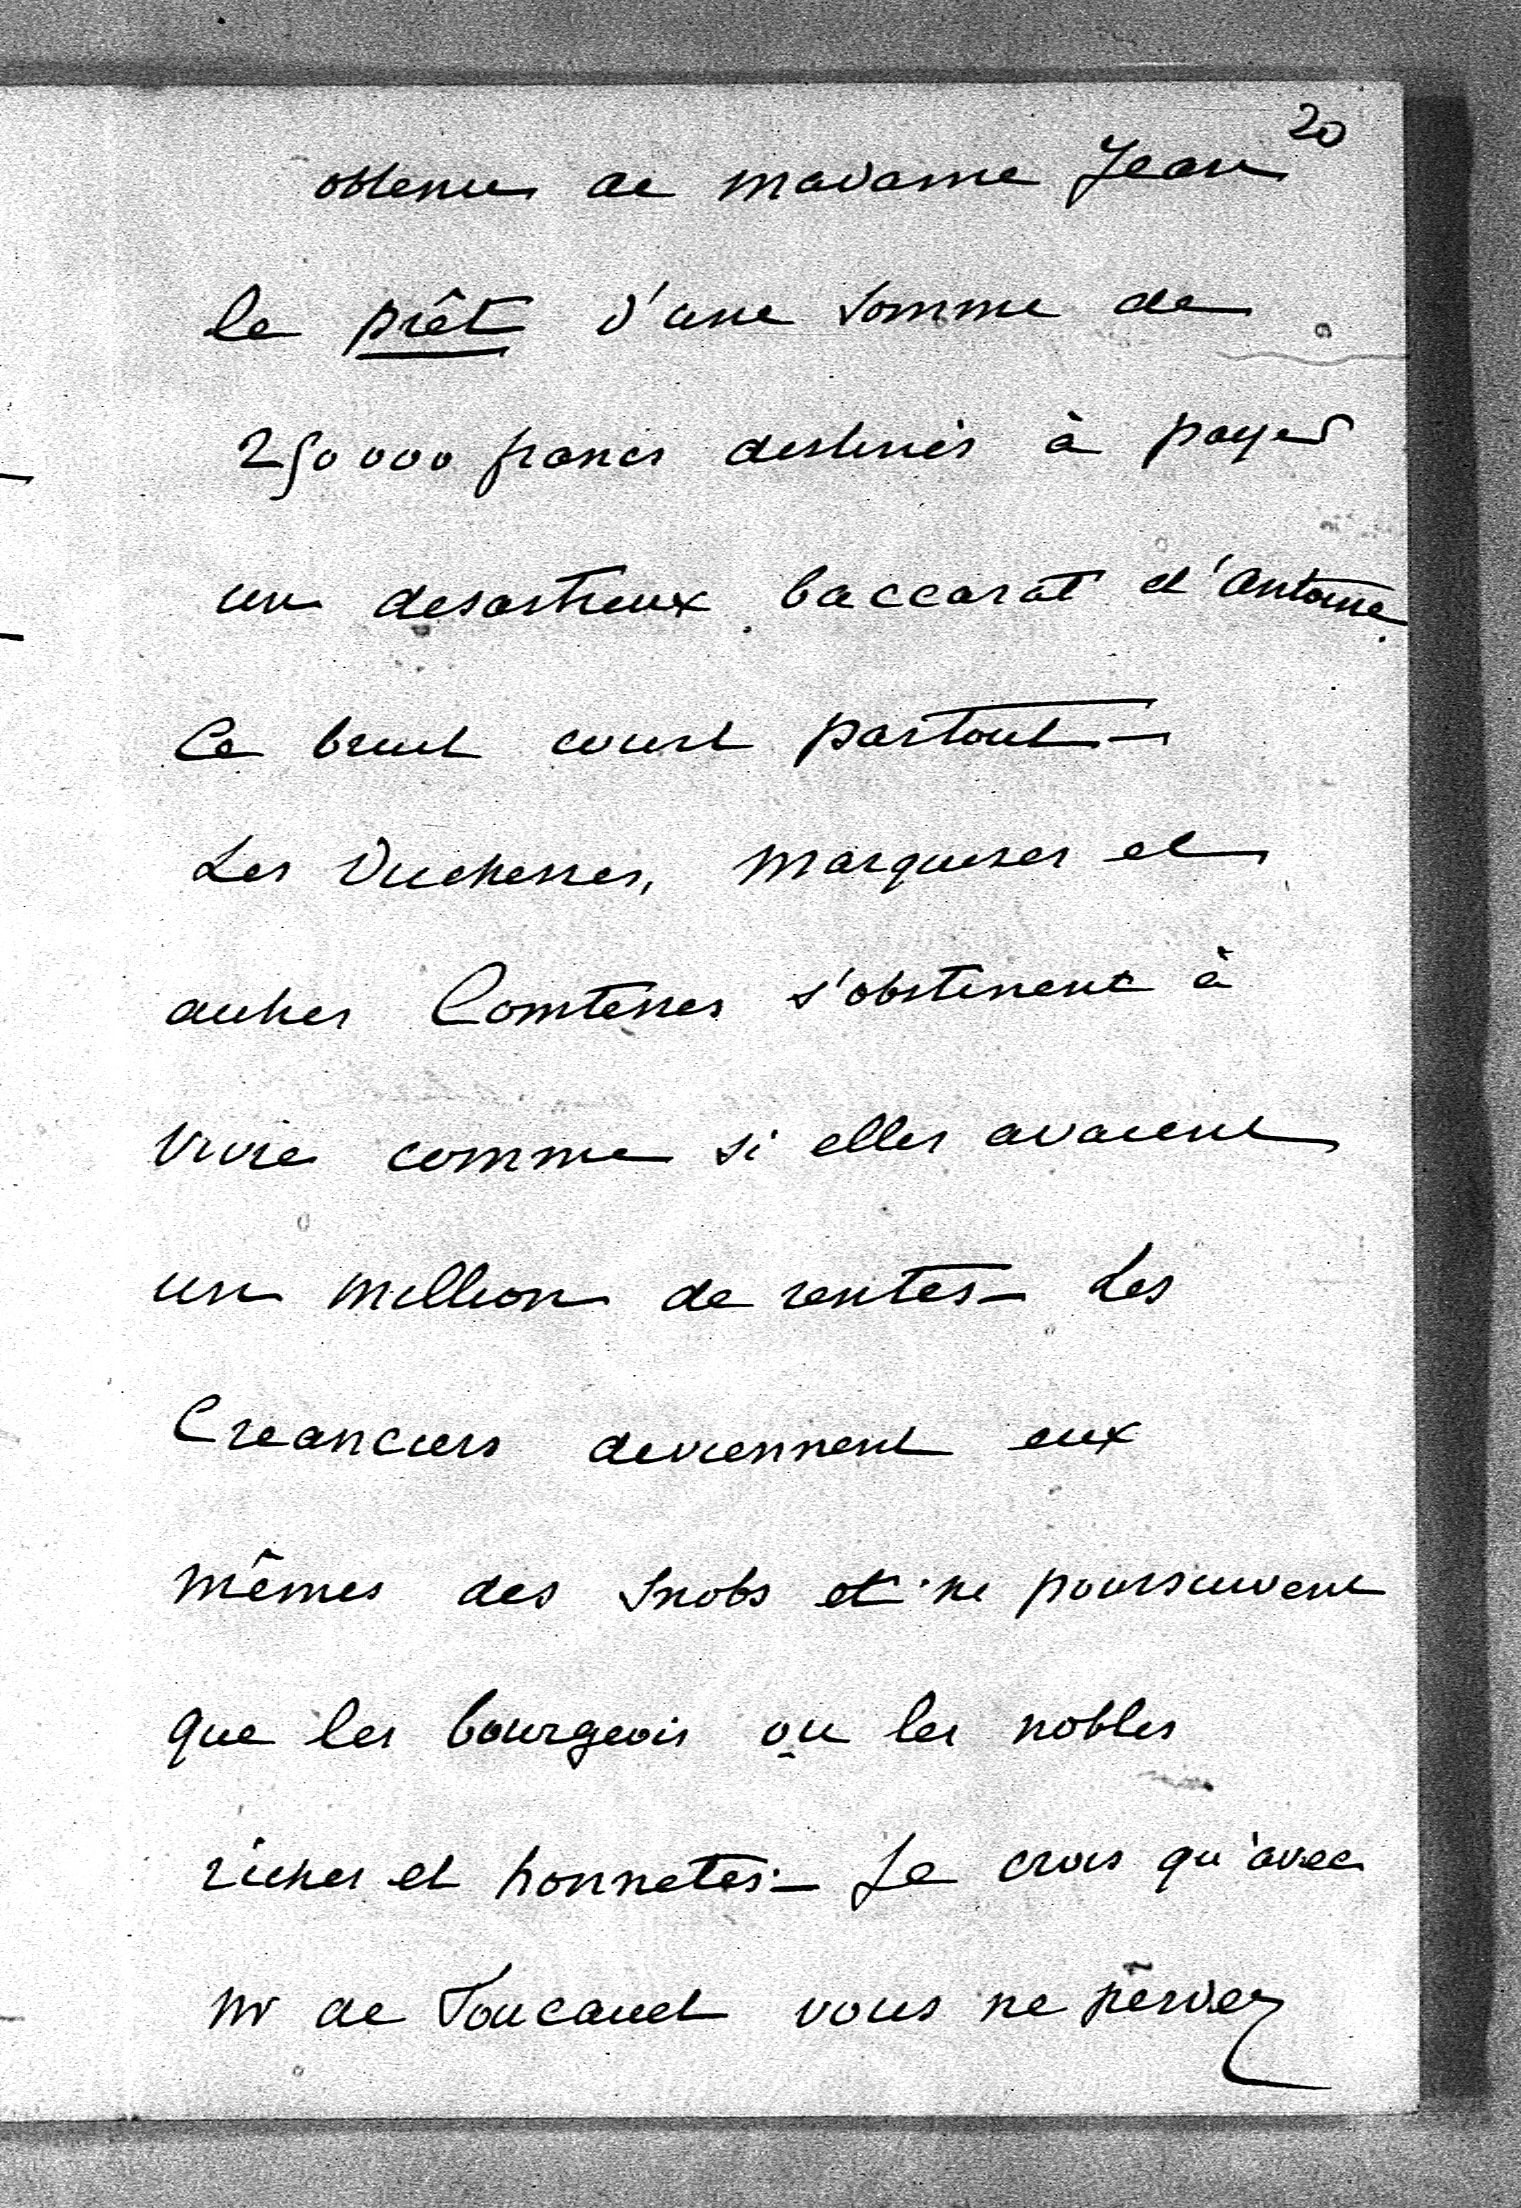 20
obtenu de madame Jean
le prêt d'une somme de
250000 francs destinés à payer
un desastreux baccarat d'Antoine.
Ce bruit court partout —
Les Duchesses, Marquises et
autres Comtesses s'obstinent à
vivre comme si elles avaient
un million de rentes — Les
Creanciers deviennent eux
mêmes des snobs et ne poursuivent
que les bourgeois ou les nobles
riches et honnetes — Je crois qu'avec
Mr de Toucauet vous ne perdez